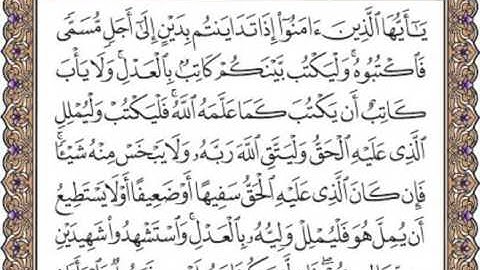 يَٰٓأَيُّهَا ٱلَّذِينَ ءَامَنُوٓا۟ إِذَا تَدَايَنتُم بِدَيْنٍ إِلَىٰٓ أَجَلٍ مُّسَمًّى
فَٱكْتُبُوهُ ۚ وَلْيَكْتُب بَّيْنَكُمْ كَاتِبٌۢ بِٱلْعَدْلِ ۚ وَلَا يَأْبَ
كَاتِبٌ أَن يَكْتُبَ كَمَا عَلَّمَهُ ٱللَّهُ ۚ فَلْيَكْتُبْ وَلْيُمْلِلِ
ٱلَّذِى عَلَيْهِ ٱلْحَقُّ وَلْيَتَّقِ ٱللَّهَ رَبَّهُۥ وَلَا يَبْخَسْ مِنْهُ شَيْـًٔا ۚ
فَإِن كَانَ ٱلَّذِى عَلَيْهِ ٱلْحَقُّ سَفِيهًا أَوْ ضَعِيفًا أَوْ لَا يَسْتَطِيعُ
أَن يُمِلَّ هُوَ فَلْيُمْلِلْ وَلِيُّهُۥ بِٱلْعَدْلِ ۚ وَٱسْتَشْهِدُوا۟ شَهِيدَيْنِ